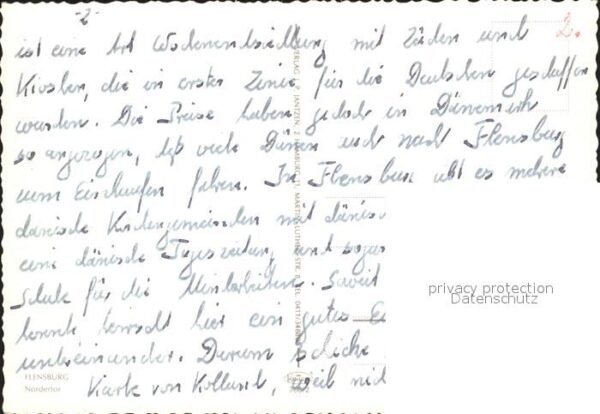 -2-
2.
ist eine Art Wochenendsiedlung mit Läden und
Kiosken, die in erster Linie für die Deutschen geschaffen
wurden. Die Preise haben jedoch in Dänemark
so angezogen, daß viele Dänen auch nach Flensburg
zum Einkaufen fahren. In Flensburg gibt es mehrere
dänische Kirchengemeinden mit dänisc
eine dänische Tageszeitung, und sogar
Schule für die Minderheiten. Soweit
konnte herrscht hier ein gutes
untereinander. Darum schicke
Karte von Kollund, weil nic
VERLAG P. JANTZEN, 2 HAMBURG 71, MARTIN-LUTHER-STR.
privacy protection
Datenschutz
FLENSBURG
Nordertor